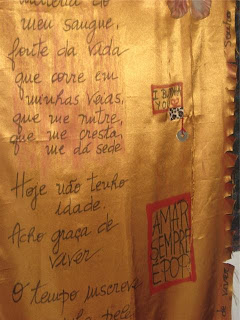 matéria do
meu sangue,
forte da vida
que corre em
minhas veias,
que me nutre,
que me cresta,
me dá sede
Hoje não tenho
idade.
Acho graça de
viver
O tempo inscreve
pele
AMAR
SEMPRE